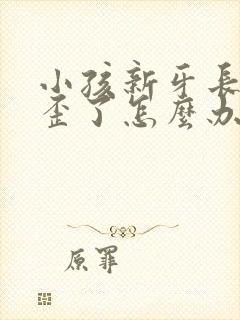 小孩新牙長
歪了怎麼办
原罪